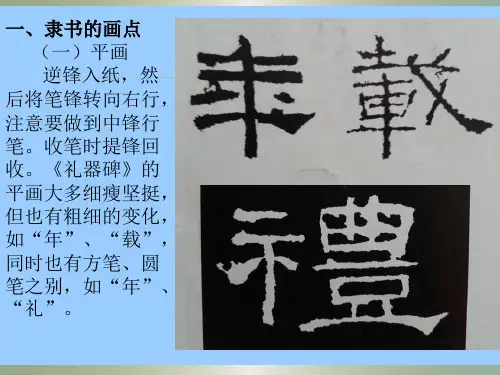 一、隶书的画点
（一）平画
逆锋入纸，然
后将笔锋转向右行，
注意要做到中锋行
笔。收笔时提锋回
收。《礼器碑》的
平画大多细瘦坚挺，
但也有粗细的变化，
如“年”、“载”，
同时也有方笔、圆
笔之别，如“年”、
“礼”。
年 載
禮